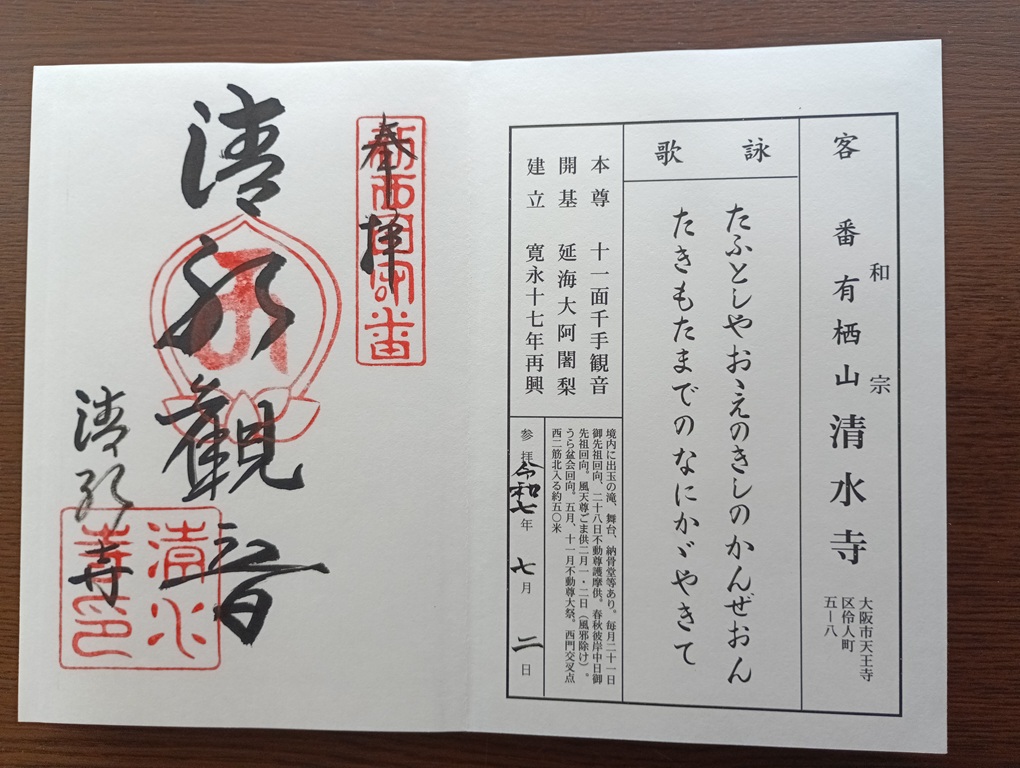 客番 有栖山 清水寺
和宗
大阪市天王寺
区伶人町
五ー八
詠歌
たふとしやおゝえのきしのかんぜおん
たきもたまでのなにかゞやきて
本尊 十一面千手観音
開基 延海大阿闍梨
建立 寛永十七年再興
境内に出玉の滝、舞台、納骨堂等あり。毎月二十一日
御先祖回向、二十八日不動尊護摩供。春秋彼岸中日御
先祖回向。風天尊ごま供二月一・二日（風邪除け）。
うら盆会回向。五月、十一月不動尊大祭。西門交叉点
西二筋北入る約五〇米
参拝 令和七年 七月 二日
奉拝
清水観音
清水寺